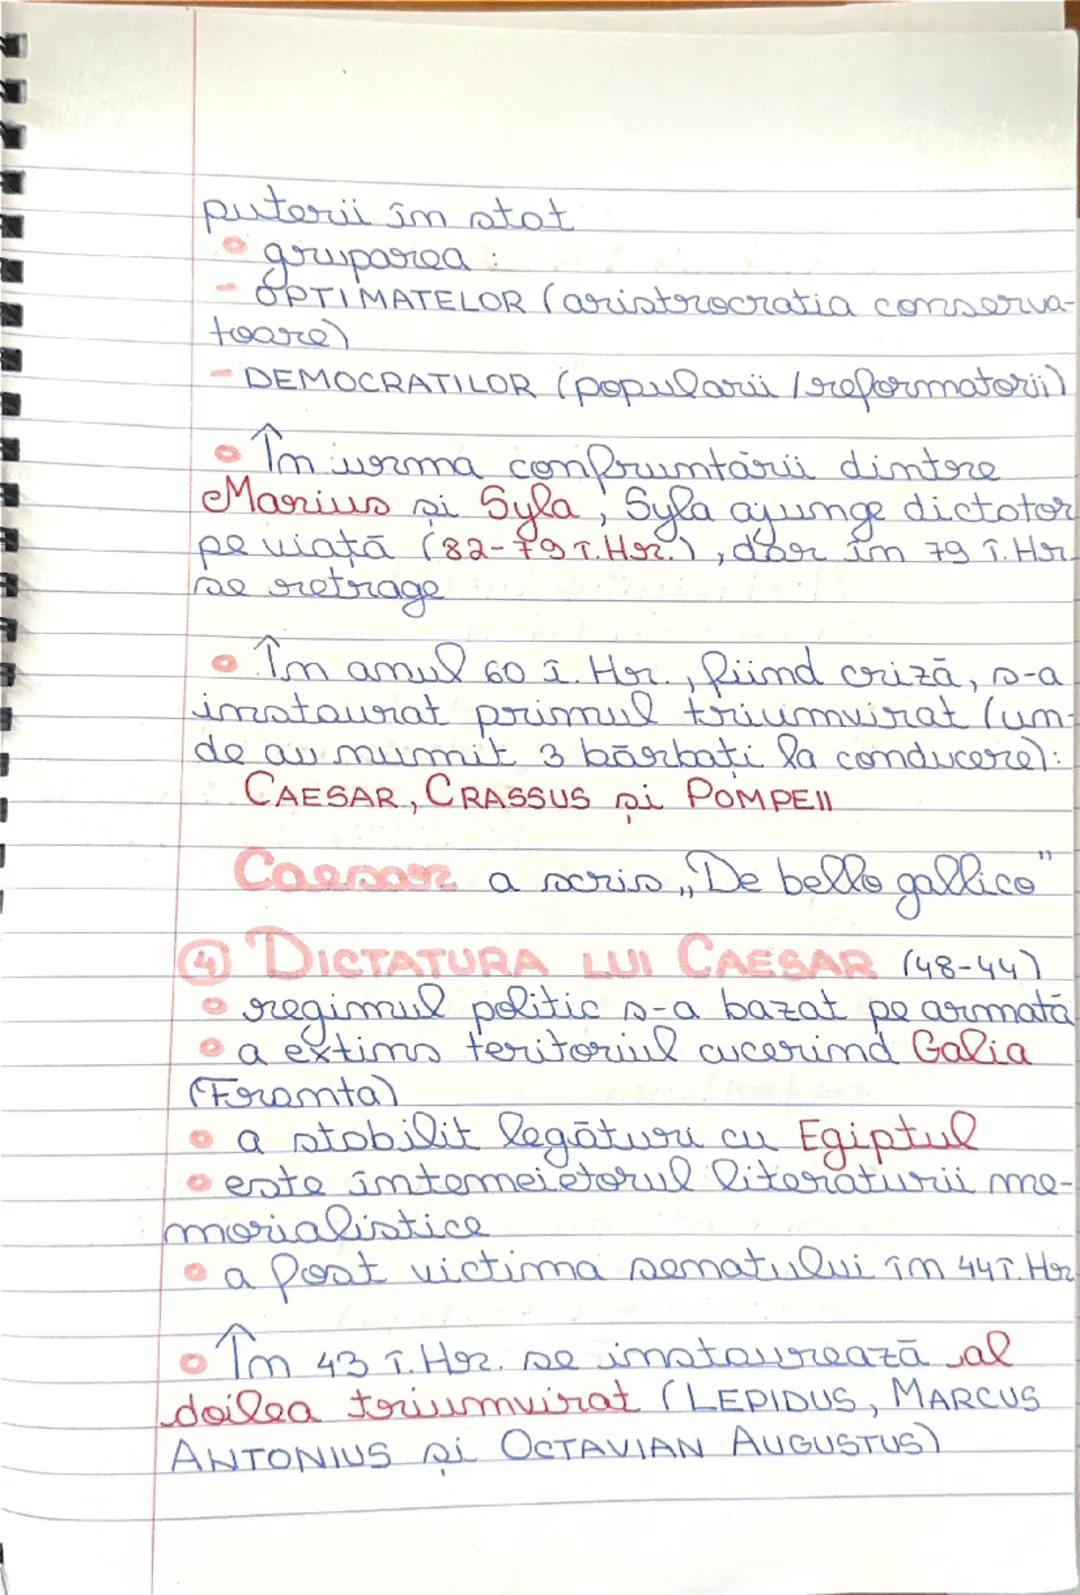 puterii în stat
• gruparea :
- OPTIMATELOR (aristrocratia conserva-
toare)
- DEMOCRATILOR (popularii / reformatorii)
• În urma confruntării dintre
Marius și Syla, Syla ajunge dictator
pe viață (82-79 î.Hr.), dar în 79 î.Hr.
se retrage
• În anul 60 î. Hr., fiind criză, s-a
instaurat primul triumvirat (un-
de au numit 3 bărbați la conducere):
CAESAR, CRASSUS și POMPEII
Caesar a scris „De bello gallico"
④ DICTATURA LUI CAESAR (48-44)
• regimul politic s-a bazat pe armată
• a extins teritoriul cucerind Galia
(Franta)
• a stabilit legături cu Egiptul
• este întemeietorul literaturii me-
morialistice
• a fost victima senatului în 44 î.Hr
• În 43 î.Hr. se instaurează al
doilea triumvirat (LEPIDUS, MARCUS
ANTONIUS și OCTAVIAN AUGUSTUS)